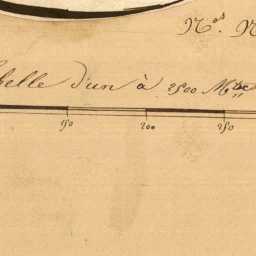 Nos. N
helle d'un à 2500 Mtre
150 200 250